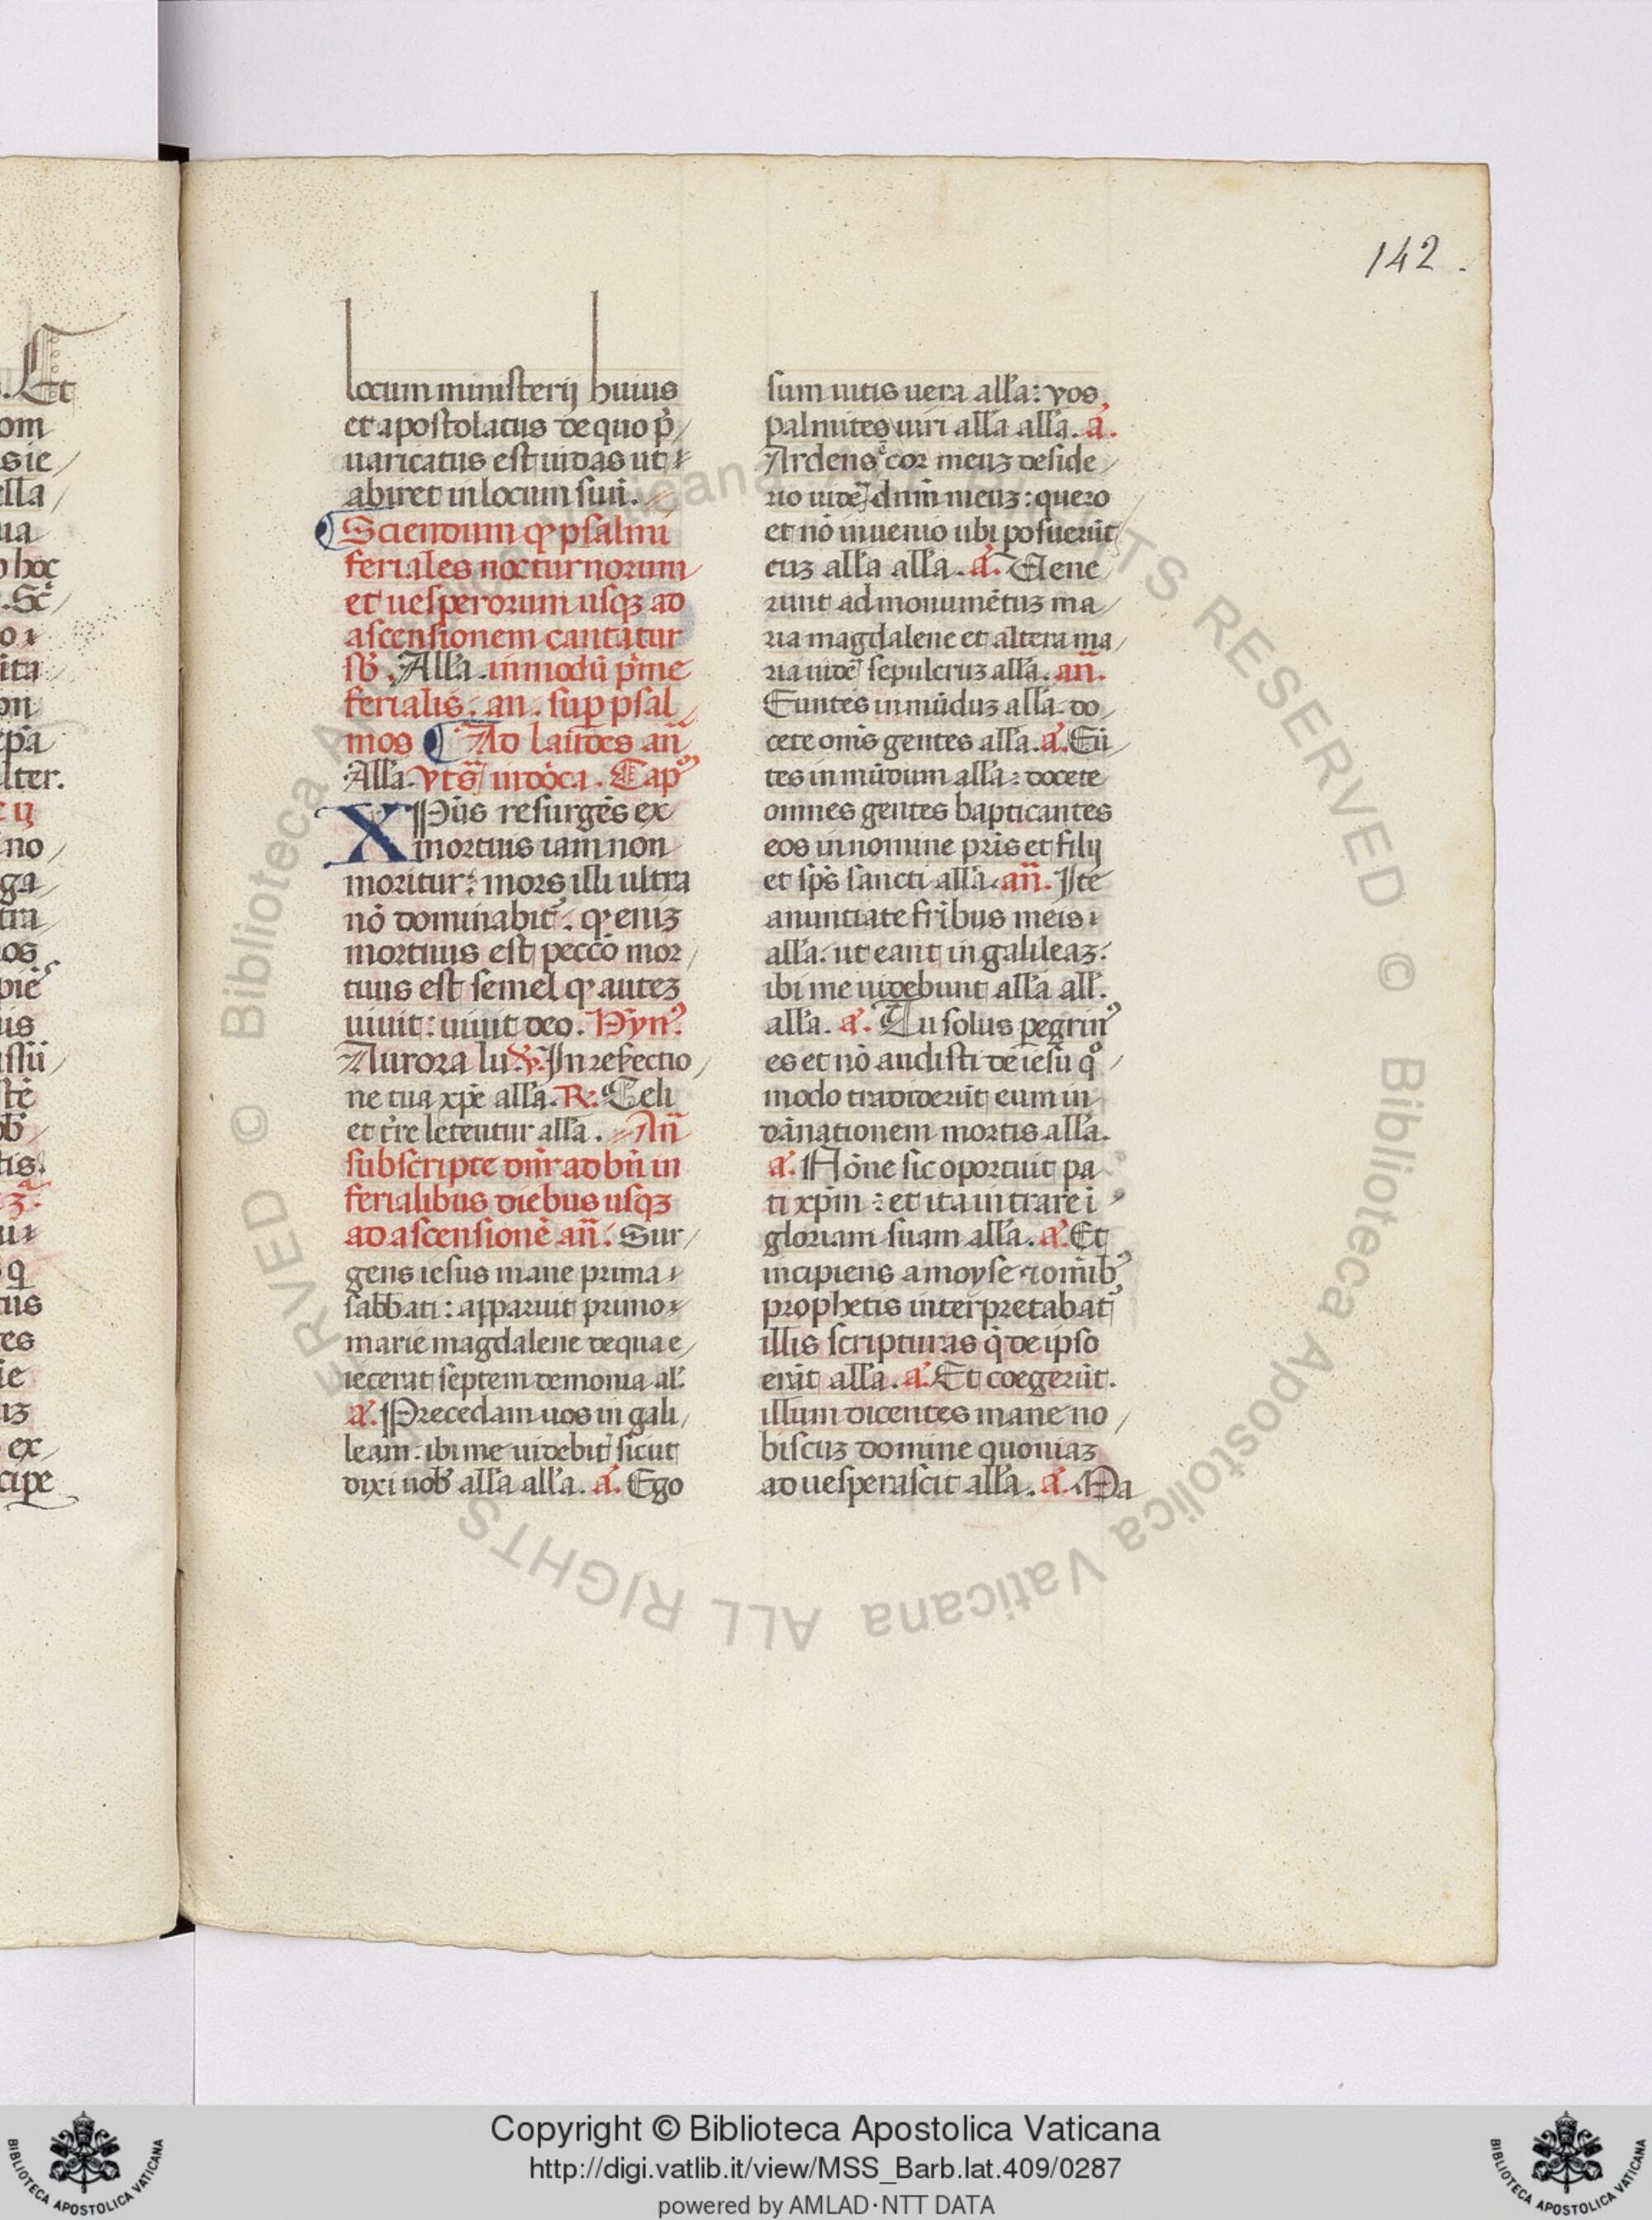 142.
locum ministerij huius
et apostolatus de quo p̄
uaricatus est iudas ut
abiret in locum suū.
Sciendum qꝫ psalmi
feriales nocturnorum
et uesperorum usqꝫ ad
ascensionem cantātur
sb. Alľa. in modū pͥme
ferialis. an. sup psal
mos Ad laudes añ
Alľa. Vrs indōca. Capꝰ
XPūs resurgēs ex
mortuis iam non
moritur: mors illi ultra
nō dominabit᷑. qꝫ enīꝫ
mortuus est peccō mor
tuus est semel qꝫ auteꝫ
uiuit: uiuit deo. Hynꝰ.
Aurora lu ℣. In refectio
ne tua xp̄e alľa. R. Celi
et tr̄e letentur alľa. Añ
subscripte dn̄r ad bn̄ in
ferialibus diebus usqꝫ
ad ascensionē añ. Sur
gens iesus mane prima
sabbati: apparuit primo
marie magdalene de qua e
iecerat septem demonia al.
a. Precedam uos in gali
leam. ibi me uidebit᷑ sicut
dixi nob alľa alľa. a. Ego
sum uitis uera alľa: vos
palmites uiri alľa alľa. a.
Ardens ē cor meuꝫ deside
rio uidē dn̄m meuꝫ: quero
et nō inuenio ubi posuerūt
euꝫ alľa alľa. a. Uene
runt ad monumētuꝫ ma
ria magdalene et altera ma
ria uidē sepulcruꝫ alľa. añ.
Euntes in mūduꝫ alľa. do
cete om̄s gentes alľa. a. Eū
tes in mūdum alľa: docete
omnes gentes bapticantes
eos in nomine pr̄is et filij
et sp̄s sancti alľa. añ. Ite
anuntiate fr̄ibus meis
alľa. ut eant in galileaꝫ:
ibi me uidebunt alľa all.
alľa. a. Tu solus pegrinꝰ
es et nō audisti de iesu qͦ
modo tradiderūt eum in
dānationem mortis alľa.
a. Nōne sic oportuit pa
ti xp̄m: et ita intrare ī
gloriam suam alľa. a. Et
incipiens a moyse ⁊ omībꝰ
prophetis interpretabat᷑
illis scripturas q̄ de ipso
erāt alľa. a. Et coegerūt.
illum dicentes mane no
biscuꝫ domine quoniaꝫ
ad uesperascit alľa. a. Ma
Copyright © Biblioteca Apostolica Vaticana
http://digi.vatlib.it/view/MSS_Barb.lat.409/0287
powered by AMLAD·NTT DATA